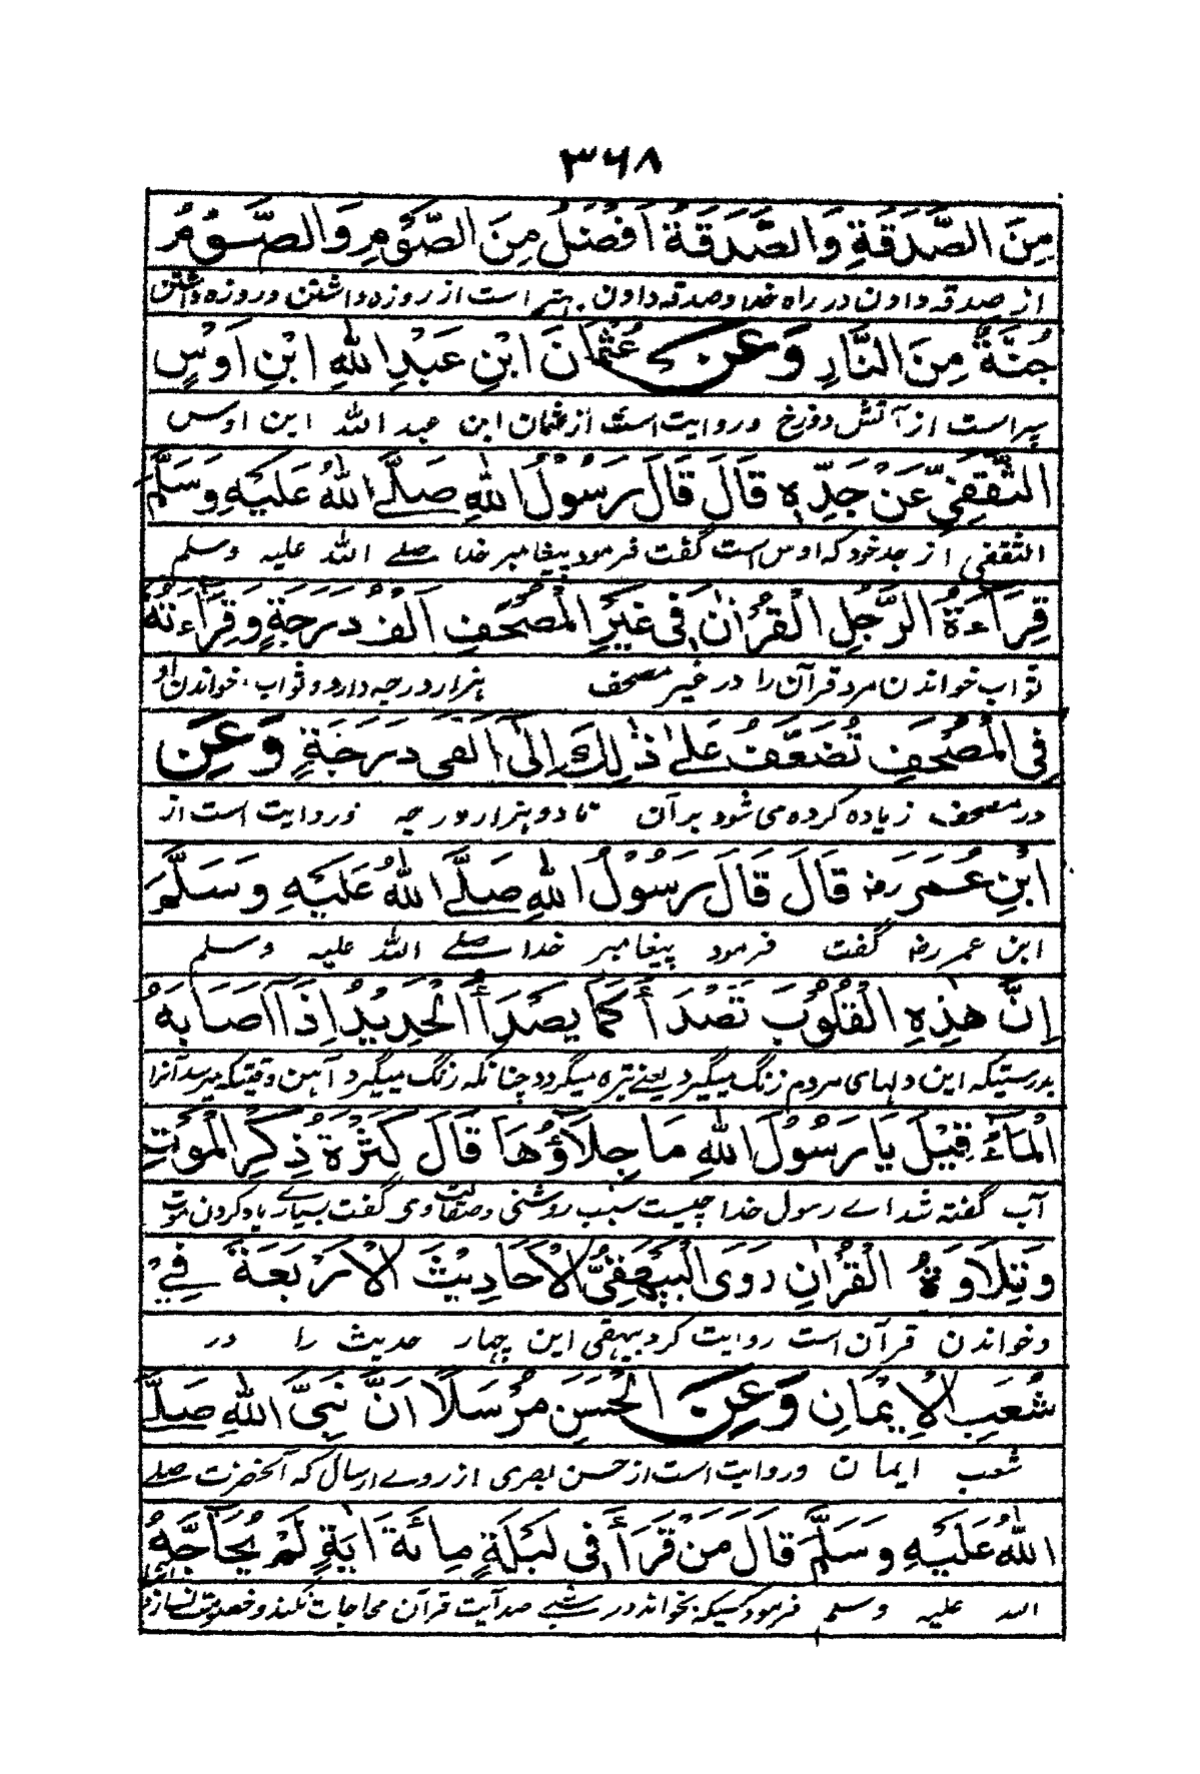 ۳۶۸
مِنَ الصَّدَقَةِ وَالصَّدَقَةُ اَفْضَلُ مِنَ الصَّوْمِ وَالصَّوْمُ
از صدقہ دادن در راہ خدا و صدقہ دادن بہتر است از روزہ داشتن و روزہ داشتن
جُنَّةٌ مِنَ النَّارِ وَعَنْ عُثْمَانَ ابْنِ عَبْدِ اللهِ ابْنِ اَوْسٍ
سپر است از آتش دوزخ و روایت است از عثمان ابن عبد اللہ ابن اوس
الثَّقَفِيِّ عَنْ جَدِّهٖ قَالَ قَالَ رَسُوْلُ اللهِ صَلَّے اللهُ عَلَيْهِ وَسَلَّمَ
الثقفی از جد خود کہ اوس است گفت فرمود پیغامبر خدا صلے اللہ علیہ وسلم
قِرَآءَةُ الرَّجُلِ الْقُرْاٰنَ فِیْ غَيْرِ الْمُصْحَفِ اَلْفُ دَرَجَةٍ وَقِرَآءَتُهٗ
ثواب خواندن مرد قرآن را در غیر مصحف ہزار درجہ دارد و ثواب خواندن او
فِی الْمُصْحَفِ تُضَعَّفُ عَلٰے ذٰلِكَ اِلٰی اَلْفَی دَرَجَةٍ وَعَنِ
در مصحف زیادہ کردہ می شود بر آن تا دو ہزار درجہ و روایت است از
ابْنِ عُمَرَ رضہ قَالَ قَالَ رَسُوْلُ اللهِ صَلَّے اللهُ عَلَيْهِ وَسَلَّمَ
ابن عمر رضہ گفت فرمود پیغامبر خدا صلے اللہ علیہ وسلم
اِنَّ هٰذِهِ الْقُلُوْبَ تَصْدَأُ كَمَا يَصْدَأُ الْحَدِيْدُ اِذَا اَصَابَهُ
بدرستیکہ این دلہای مردم زنگ میگیرد یعنے تیرہ میگردد چنانکہ زنگ میگیرد آہن وقتیکہ میرسد آنرا
الْمَآءُ قِيْلَ يَا رَسُوْلَ اللهِ مَا جِلَآؤُهَا قَالَ كَثْرَةُ ذِكْرِ الْمَوْتِ
آب گفتہ شد اے رسول خدا چیست سبب روشنی و صقالت وی گفت بسیارے یاد کردن موت
وَتِلَاوَةُ الْقُرْاٰنِ رَوَی الْبَيْهَقِیُّ الْاَحَادِيْثَ الْاَرْبَعَةَ فِيْ
و خواندن قرآن است روایت کرد بیہقی این چہار حدیث را در
شُعَبِ الْاِيْمَانِ وَعَنِ الْحَسَنِ مُرْسَلًا اَنَّ نَبِیَّ اللهِ صَلَّے
شعب ایمان و روایت است از حسن بصری از روے ارسال کہ آنحضرت صلے
اللهُ عَلَيْهِ وَسَلَّمَ قَالَ مَنْ قَرَأَ فِیْ لَيْلَةٍ مِائَةَ اٰيَةٍ لَمْ يُحَاجَّهُ
اللہ علیہ وسلم فرمود کسیکہ بخواند در شبے صد آیت قرآن محاجات نکند و خصومت